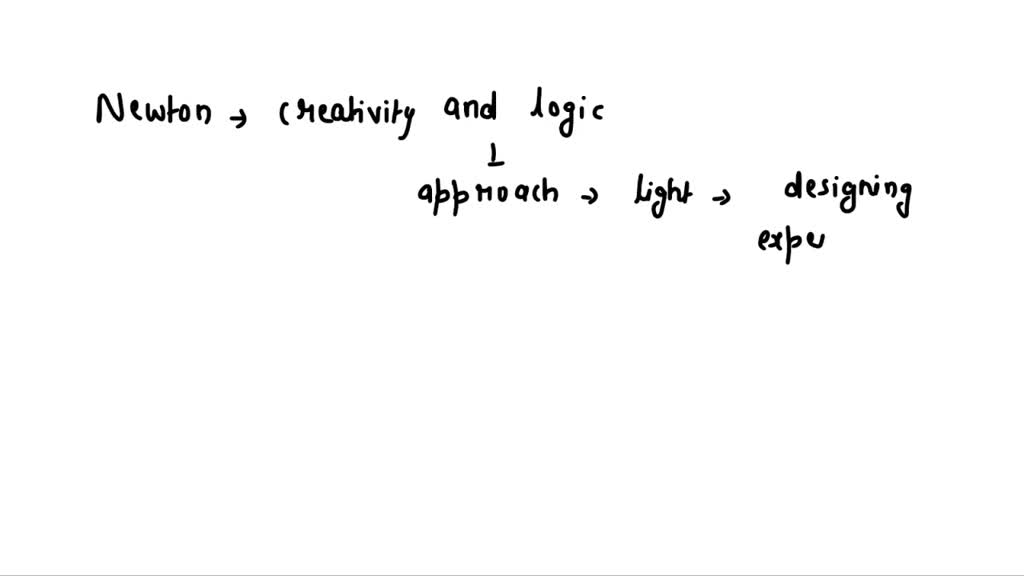 Newton → creativity and logic
↓
approach → light → designing
expe